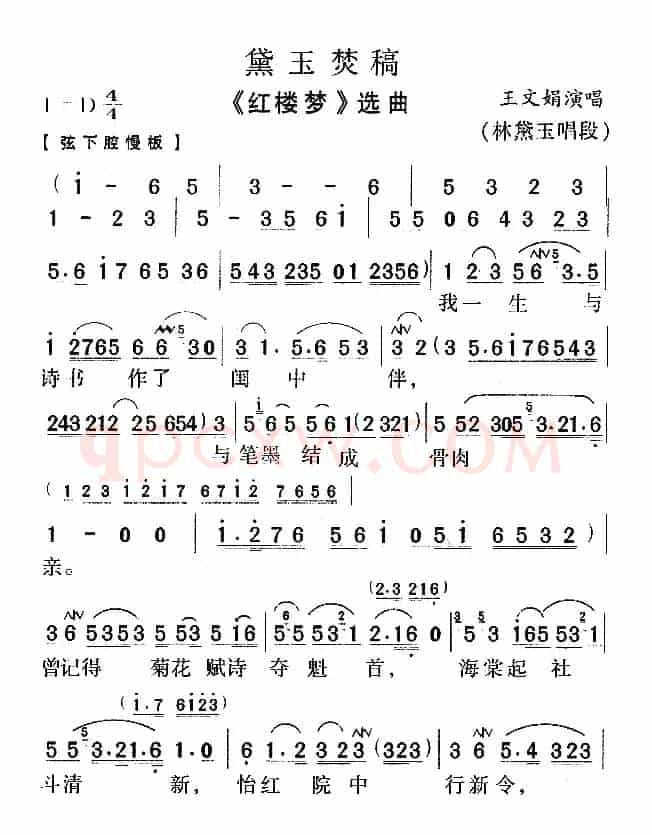 黛玉焚稿
1=D 4/4 《红楼梦》选曲 王文娟演唱
【弦下腔慢板】 (林黛玉唱段)
( i - 6 5 3 - - 6 5 3 2 3
1 - 2 3 5 - 3 5 6 i 5 5 0 6 4 3 2 3
5. 6 i 7 6 5 3 6 5 4 3 2 3 5 0 1 2 3 5 6 ) 1 2. 3 5 6 5 3. 5
我一生与
i 2 7 6 5 6 6 5 3 0 3 1. 5. 6 5 3 3 2 ( 3 5. 6 i 7 6 5 4 3
诗书作了闺中伴,
2 4 3 2 1 2 2 5 6 5 4 ) 3 5 i 6 5 5 6 1 ( 2 3 2 1 ) 5 5 2 3 0 5 5 3. 2 1. 6
与笔墨结成骨肉
( 1 2 3 i 2 i 7 6 7 i 2 7 6 5 6
1 - 0 0 i. 2 7 6 5 6 i 0 5 i 6 5 3 2 )
亲。
( 2. 3 2 1 6 )
3 6 5 3 5 3 5 5 3 5 i 6 5 5 5 3 1 2. 1 6 0 5 3 i 6 5 5 3 1
曾记得菊花赋诗夺魁首, 海棠起社
( i. 7 6 i 2 3 )
5 5 5 3. 2 1. 6 1. 0 6 1. 2 3 2 3 ( 3 2 3 ) 5. 3 2 3 ( 3 2 3 )
斗清新, 怡红院中行新令,